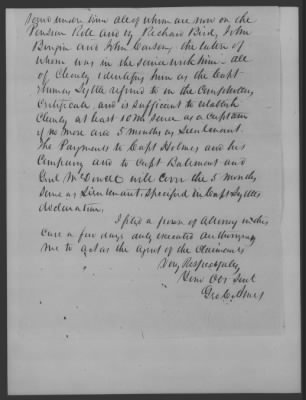 served under him all of whom are now on the
Pension Role and by Richard Bird, John
and John the latter of
whom was in the service with him – all
of clearly identifying him as the Capt
Lytle refered to in the Comptrollers
Certificate, and is sufficient to establish
clearly at least 10 mo serv as a Captain
if no more and 3 months as Lieutenant.
The Payments to Capt Holmes and his
Company and to Capt and
Genl McDowell will cover the 3 months
serv as Lieutenant, specified in Capt Lytles
declaration.
I filed a power of Attorney in this
case a few days duly executed authorizing
me to act as the Agent of the Claimants
Very Respectfully
Your Obt Servt
Geo C